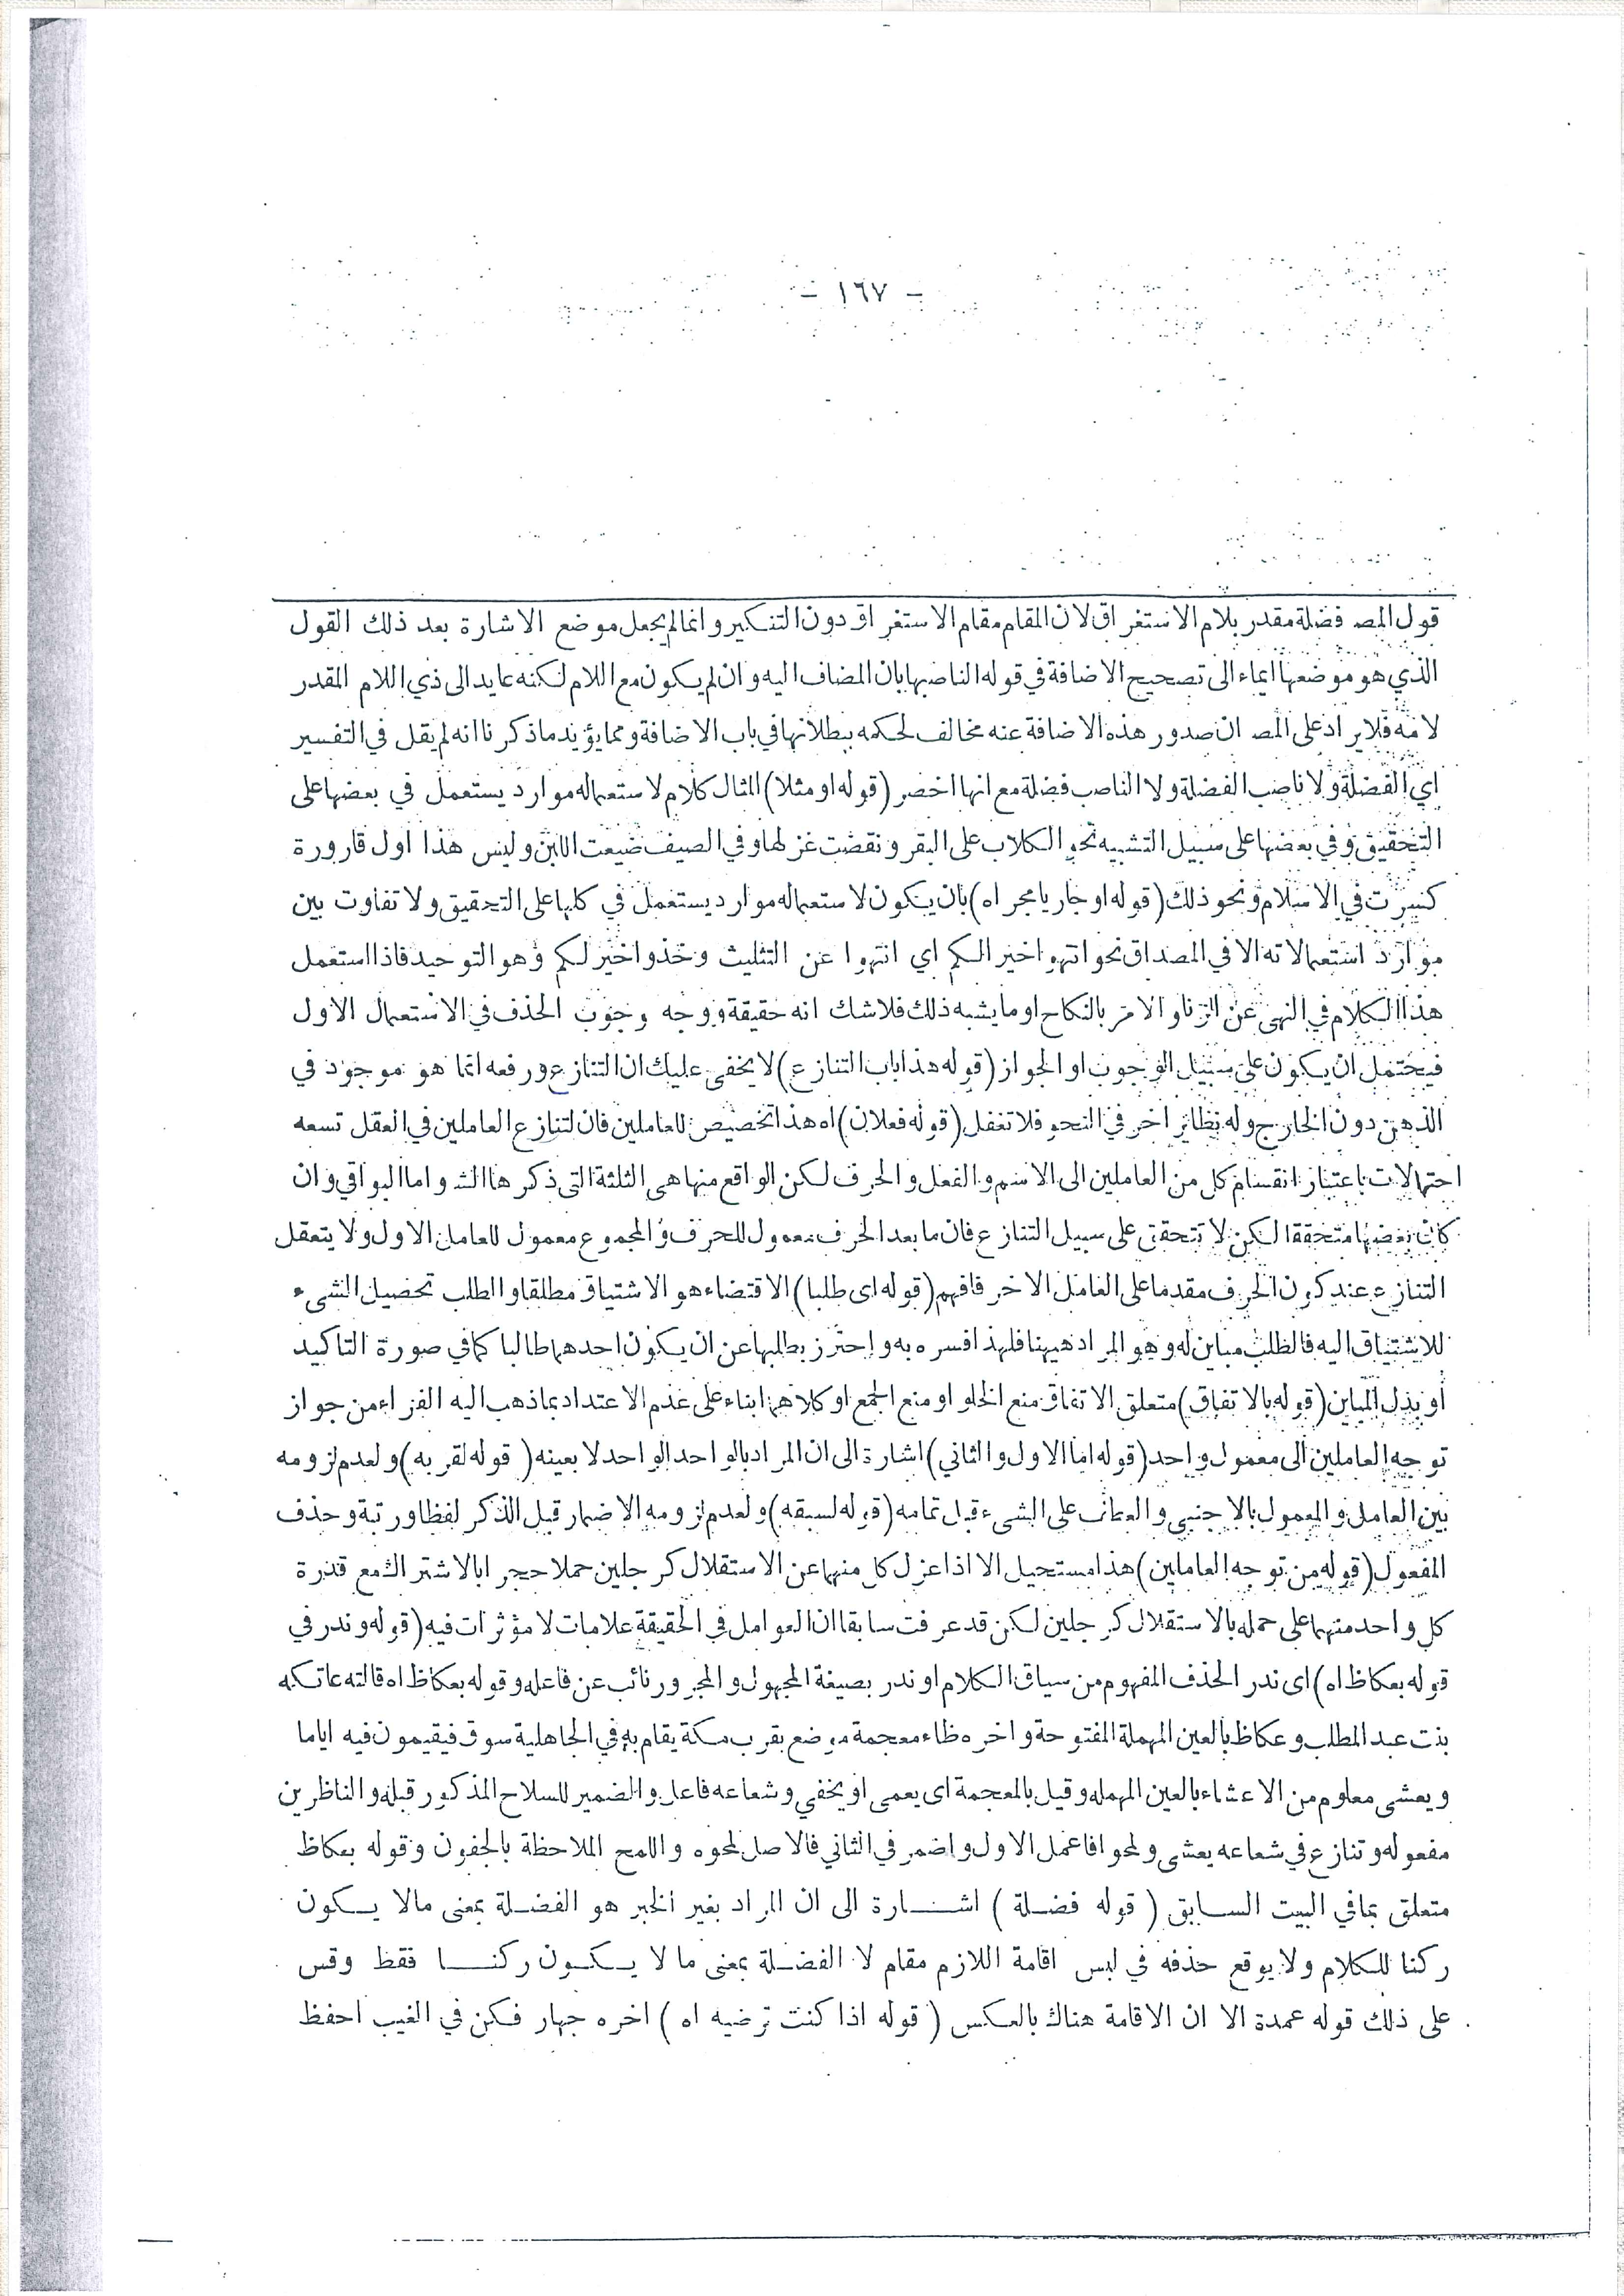 - ١٦٧ -
قول المص فضلة مقدر بلام الاستغراق لان المقام مقام الاستغراق دون التنكير وانما لم يجعل موضع الاشارة بعد ذلك القول
الذي هو موضعها ايماء الى تصحيح الاضافة في قوله الناصبها بان المضاف اليه وان لم يكون مع اللام لكنه عايد الى ذي اللام المقدر
لامه فلا يراد على المص ان صدور هذه الاضافة عنه مخالف لحكمه ببطلانها في باب الاضافة ومما يؤيد ما ذكرنا انه لم يقل في التفسير
اي الفضلة ولا ناصب الفضلة ولا الناصب فضلة مع انها اخصر (قوله او مثلا) المثال كلام لاستعماله موارد يستعمل في بعضها على
التحقيق وفي بعضها على سبيل التشبيه نحو الكلاب على البقر ونقضت غزلها وفي الصيف ضيعت اللبن وليس هذا اول قارورة
كسرت في الاسلام ونحو ذلك (قوله او جاريا مجراه) بان يكون لاستعماله موارد يستعمل في كلها على التحقيق ولا تفاوت بين
موارد استعمالاته الا في المصداق نحو انتهوا خيرا لكم اي انتهوا عن التثليث وخذوا خير لكم وهو التوحيد فاذا استعمل
هذا الكلام في النهى عن الزنا والامر بالنكاح او ما يشبه ذلك فلا شك انه حقيقة ووجه وجوب الحذف في الاستعمال الاول
فيحتمل ان يكون على سبيل الوجوب او الجواز (قوله هذا باب التنازع) لا يخفى عليك ان التنازع ورفعه انما هو موجود في
الذهن دون الخارج وله نظائر اخر في النحو فلا تغفل (قوله فعلان) اه هذا تخصيص للعاملين فان لتنازع العاملين في العقل تسعه
احتمالات باعتبار انقسام كل من العاملين الى الاسم والفعل والحرف لكن الواقع منها هى الثلثة التى ذكرها الش واما البواقي وان
كان بعضها متحققا لكن لا تتحقق على سبيل التنازع فان ما بعد الحرف معمول للحرف والمجموع معمول للعامل الاول ولا يتعقل
التنازع عند كون الحرف مقدما على العامل الاخر فافهم (قوله اى طلبا) الاقتضاء هو الاشتياق مطلقا والطلب تحصيل الشىء
للاشتياق اليه فالطلب مباين له وهو المراد هيهنا فلهذا فسره به واحترز بطلبها عن ان يكون احدهما طالبا كما في صورة التاكيد
او بدل المباين (قوله بالاتفاق) متعلق الاتفاق منع الخلو او منع الجمع او كلاهما بناء على عدم الاعتداد بما ذهب اليه الفراء من جواز
توجه العاملين الى معمول واحد (قوله اما الاول والثاني) اشارة الى ان المراد بالواحد الواحد لا بعينه (قوله لقربه) ولعدم لزومه
بين العامل والمعمول بالاجنبي والعطف على الشىء قبل تمامه (قوله لسبقه) ولعدم لزومه الاضمار قبل الذكر لفظا ورتبة وحذف
المفعول (قوله من توجه العاملين) هذا مستحيل الا اذا عزل كل منهما عن الاستقلال كرجلين حملا حجرا بالاشتراك مع قدرة
كل واحد منهما على حمله بالاستقلال كرجلين لكن قد عرفت سابقا ان العوامل في الحقيقة علامات لا مؤثرات فيه (قوله وندر في
قوله بعكاظ اه) اى ندر الحذف المفهوم من سياق الكلام او ندر بصيغة المجهول والمجرور نائب عن فاعله وقوله بعكاظ اه قالته عاتكه
بنت عبد المطلب وعكاظ بالعين المهملة المفتوحة واخره ظاء معجمة موضع بقرب مكة يقام به في الجاهلية سوق فيقيمون فيه اياما
ويعشى معلوم من الاعشاء بالعين المهمله وقيل بالمعجمة اى يعمى او يخفي وشعاعه فاعل والضمير للسلاح المذكور قبله والناظرين
مفعوله وتنازع في شعاعه يعشى ولمحوا فاعمل الاول واضمر في الثاني فالاصل لمحوه واللمح الملاحظة بالجفون وقوله بعكاظ
متعلق بما في البيت السابق (قوله فضلة) اشارة الى ان المراد بغير الخبر هو الفضلة بمعنى مالا يكون
ركنا للكلام ولا يوقع حذفه في لبس اقامة اللازم مقام لا الفضلة بمعنى ما لا يكون ركنا فقط وقس
على ذلك قوله عمدة الا ان الاقامة هناك بالعكس (قوله اذا كنت ترضيه اه) اخره جهار فكن في الغيب احفظ